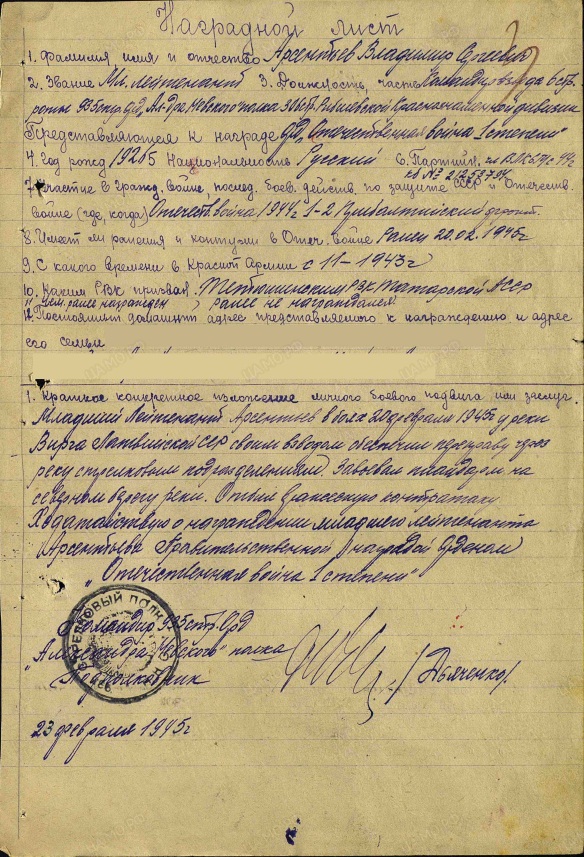 Наградной лист
1. Фамилия имя и отчество Арсентьев Владимир Сергеевич
2. Звание Мл. лейтенант 3. Должность, часть Командир взвода 6 стр.
роты 935 стр. орд. Ал-дра Невского полка стр. Краснознаменной дивизии
Представляющся к награде орд. „Отечественная война 1 степени"
4. Год рожд 1925 Национальность Русский 6. Партийн. чл ВЛКСМ с
кб №
7. Участие в гражд. войне, послед. боев. действ. по защите СССР и Отечеств.
войне (где, когда) Отечеств. война 1944г 1-2 Прибалтийский фронт.
8. Имеет ли ранения и контузии в Отеч. войне Ранен 20.02.1945г
9. С какого времени в Красной Армии с 11-1943г
10. Каким РВК призван Тетюшинским РВК Татарской АССР
11. чем ранее награжден ранее не награждался
12. Постоянный домашний адрес представляемого к награждению и адрес
его семьи
1. Краткое конкретное изложение личного боевого подвига или заслуг.
Младший Лейтенант Арсентьев в боях 20 февраля 1945г у реки
Латвийской ССР своим взводом обеспечил переправу через
реку стрелковым подразделениям. Завоевал плацдарм на
северном берегу реки. Отбил контратаку.
Ходатайствую о награждении младшего лейтенанта
Арсентьева Правительственной наградой Орденом
„Отечественная война 1 степени"
СТРЕЛКОВЫЙ ПОЛК
Командир 935 стр. Орд
Александра Невского" полка
Подполковник /Дьяченко/
23 февраля 1945г